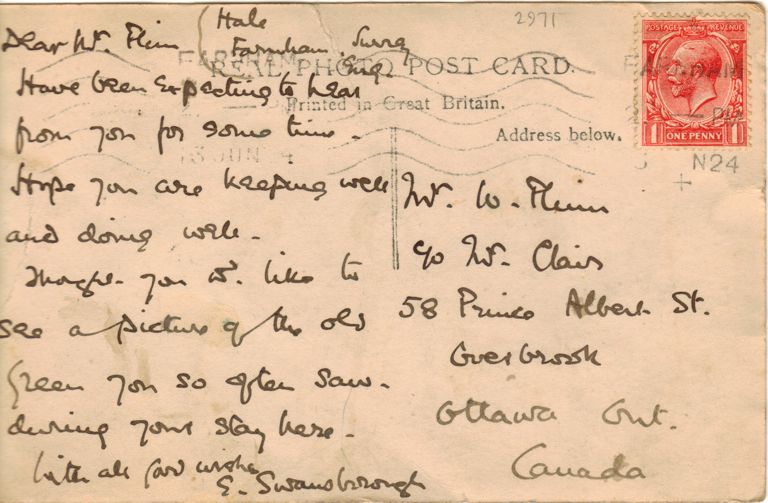 2971
Hale
Farnham. Surrey
Eng.
REAL PHOTO POST CARD.
Printed in Great Britain.
Address below.
POSTAGE REVENUE
1 ONE PENNY 1
FARNHAM
FARNHAM
PM
13 JUN 24
N24
Dear Mr.
Have been Expecting to hear
from you for some time -
Hope you are keeping well
and doing well -
Thought you wd. like to
see a picture of the old
Green you so often saw -
during your stay here -
With all good wishes
E. Swansborough
Mr. W.
c/o Mr. Clairs
58 Prince Albert St.
Overbrook
Ottawa Ont.
Canada